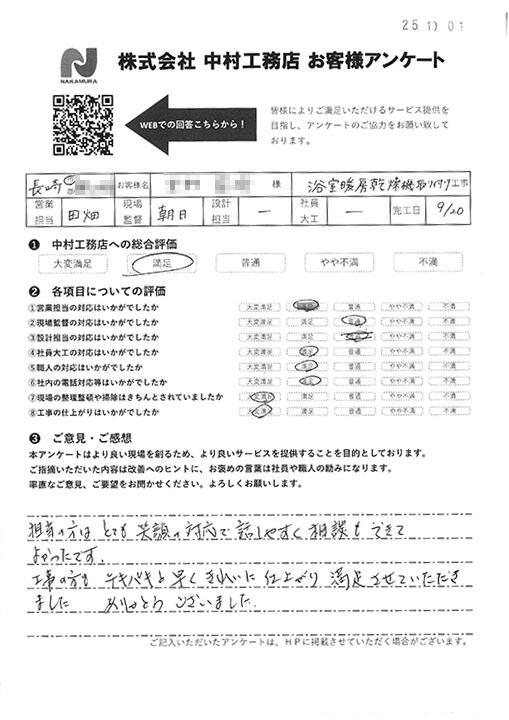 25.11.01
NAKAMURA
株式会社 中村工務店 お客様アンケート
WEBでの回答こちらから！
皆様によりご満足いただけるサービス提供を
目指し、アンケートのご協力をお願い致して
おります。
長崎 市 お客様名 様 浴室暖房乾燥機取り付け工事
営業担当 田畑 現場監督 朝日 設計担当 ー 社員大工 ー 完工日 9/20
❶ 中村工務店への総合評価
大変満足 満足 普通 やや不満 不満
❷ 各項目についての評価
①営業担当の対応はいかがでしたか 大変満足 満足 普通 やや不満 不満
②現場監督の対応はいかがでしたか 大変満足 満足 普通 やや不満 不満
③設計担当の対応はいかがでしたか 大変満足 満足 普通 やや不満 不満
④社員大工の対応はいかがでしたか 大変満足 満足 普通 やや不満 不満
⑤職人の対応はいかがでしたか 大変満足 満足 普通 やや不満 不満
⑥社内の電話対応等はいかがでしたか 大変満足 満足 普通 やや不満 不満
⑦現場の整理整頓や掃除はきちんとされていましたか 大変満足 満足 普通 やや不満 不満
⑧工事の仕上がりはいかがでしたか 大変満足 満足 普通 やや不満 不満
❸ ご意見・ご感想
本アンケートはより良い現場を創るため、より良いサービスを提供することを目的としております。
ご指摘いただいた内容は改善へのヒントに、お褒めの言葉は社員や職人の励みになります。
率直なご意見、ご要望をお聞かせください。よろしくお願いします。
担当の方は とても 笑顔の対応で 話しやすく 相談も できて
よかったです。
工事の方も テキパキと 早く きれいに 仕上がり 満足 させていただき
ました ありがとう ございました。
ご記入いただいたアンケートは、ＨＰに掲載させていただく場合がございます。